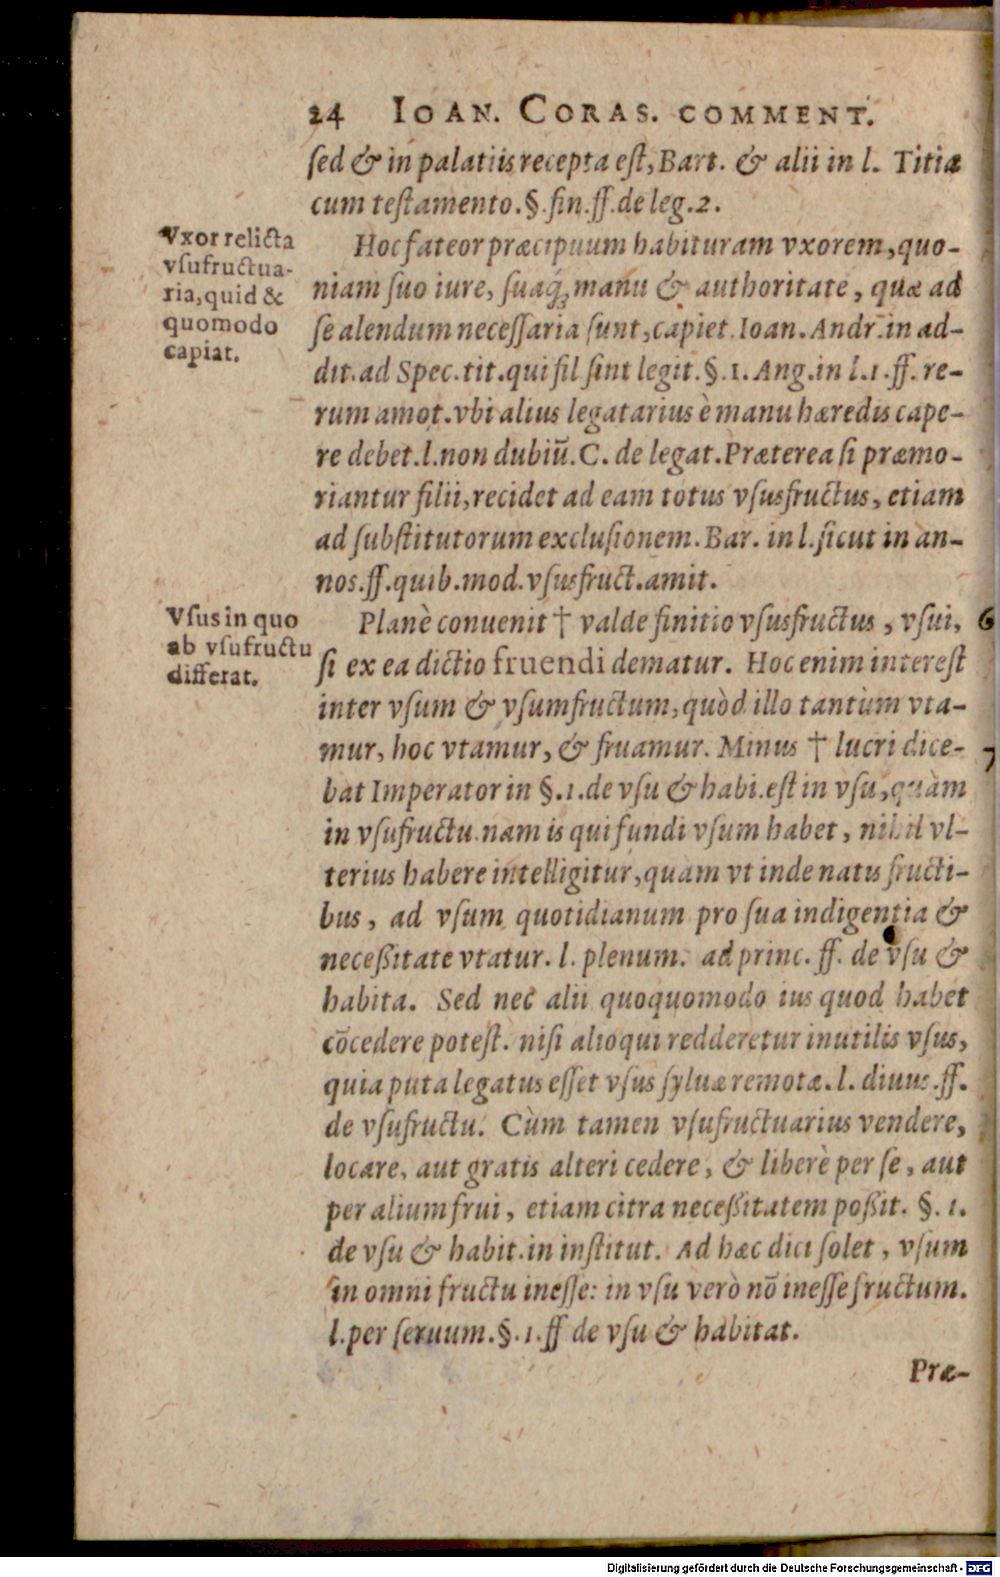 24 IOAN. CORAS. COMMENT.
sed & in palatiis recepta est, Bart. & alii in l. Titiæ
cum testamento. §. fin. ff. de leg. 2.
Vxor relicta
vsufructua-
ria, quid &
quomodo
capiat.
Hoc fateor præcipuum habituram vxorem, quo-
niam suo iure, suaq́; manu & authoritate, quæ ad
se alendum necessaria sunt, capiet. Ioan. Andr. in ad-
dit. ad Spec. tit. qui fil sint legit. §. 1. Ang. in l. 1. ff. re-
rum amot. vbi alius legatarius è manu hæredis cape-
re debet. l. non dubiũ. C. de legat. Præterea si præmo-
riantur filii, recidet ad eam totus vsusfructus, etiam
ad substitutorum exclusionem. Bar. in l. sicut in an-
nos. ff. quib. mod. vsusfruct. amit.
Vsus in quo
ab vsufructu
differat.
Planè conuenit † valde finitio vsusfructus, vsui, 6
si ex ea dictio fruendi dematur. Hoc enim interest
inter vsum & vsumfructum, quòd illo tantùm vta-
mur, hoc vtamur, & fruamur. Minus † lucri dice- 7
bat Imperator in §. 1. de vsu & habi. est in vsu, quàm
in vsufructu. nam is qui fundi vsum habet, nihil vl-
terius habere intelligitur, quam vt inde natis fructi-
bus, ad vsum quotidianum pro sua indigentia &
necessitate vtatur. l. plenum. ad princ. ff. de vsu &
habita. Sed nec alii quoquomodo ius quod habet
cõcedere potest. nisi alioqui redderetur inutilis vsus,
quia puta legatus esset vsus syluæ remotæ. l. diuus. ff.
de vsufructu. Cùm tamen vsufructuarius vendere,
locare, aut gratis alteri cedere, & liberè per se, aut
per alium frui, etiam citra necessitatem possit. §. 1.
de vsu & habit. in institut. Ad hæc dici solet, vsum
in omni fructu inesse: in vsu verò nõ inesse fructum.
l. per seruum. §. 1. ff de vsu & habitat.
Præ-
Digitalisierung gefördert durch die Deutsche Forschungsgemeinschaft - DFG